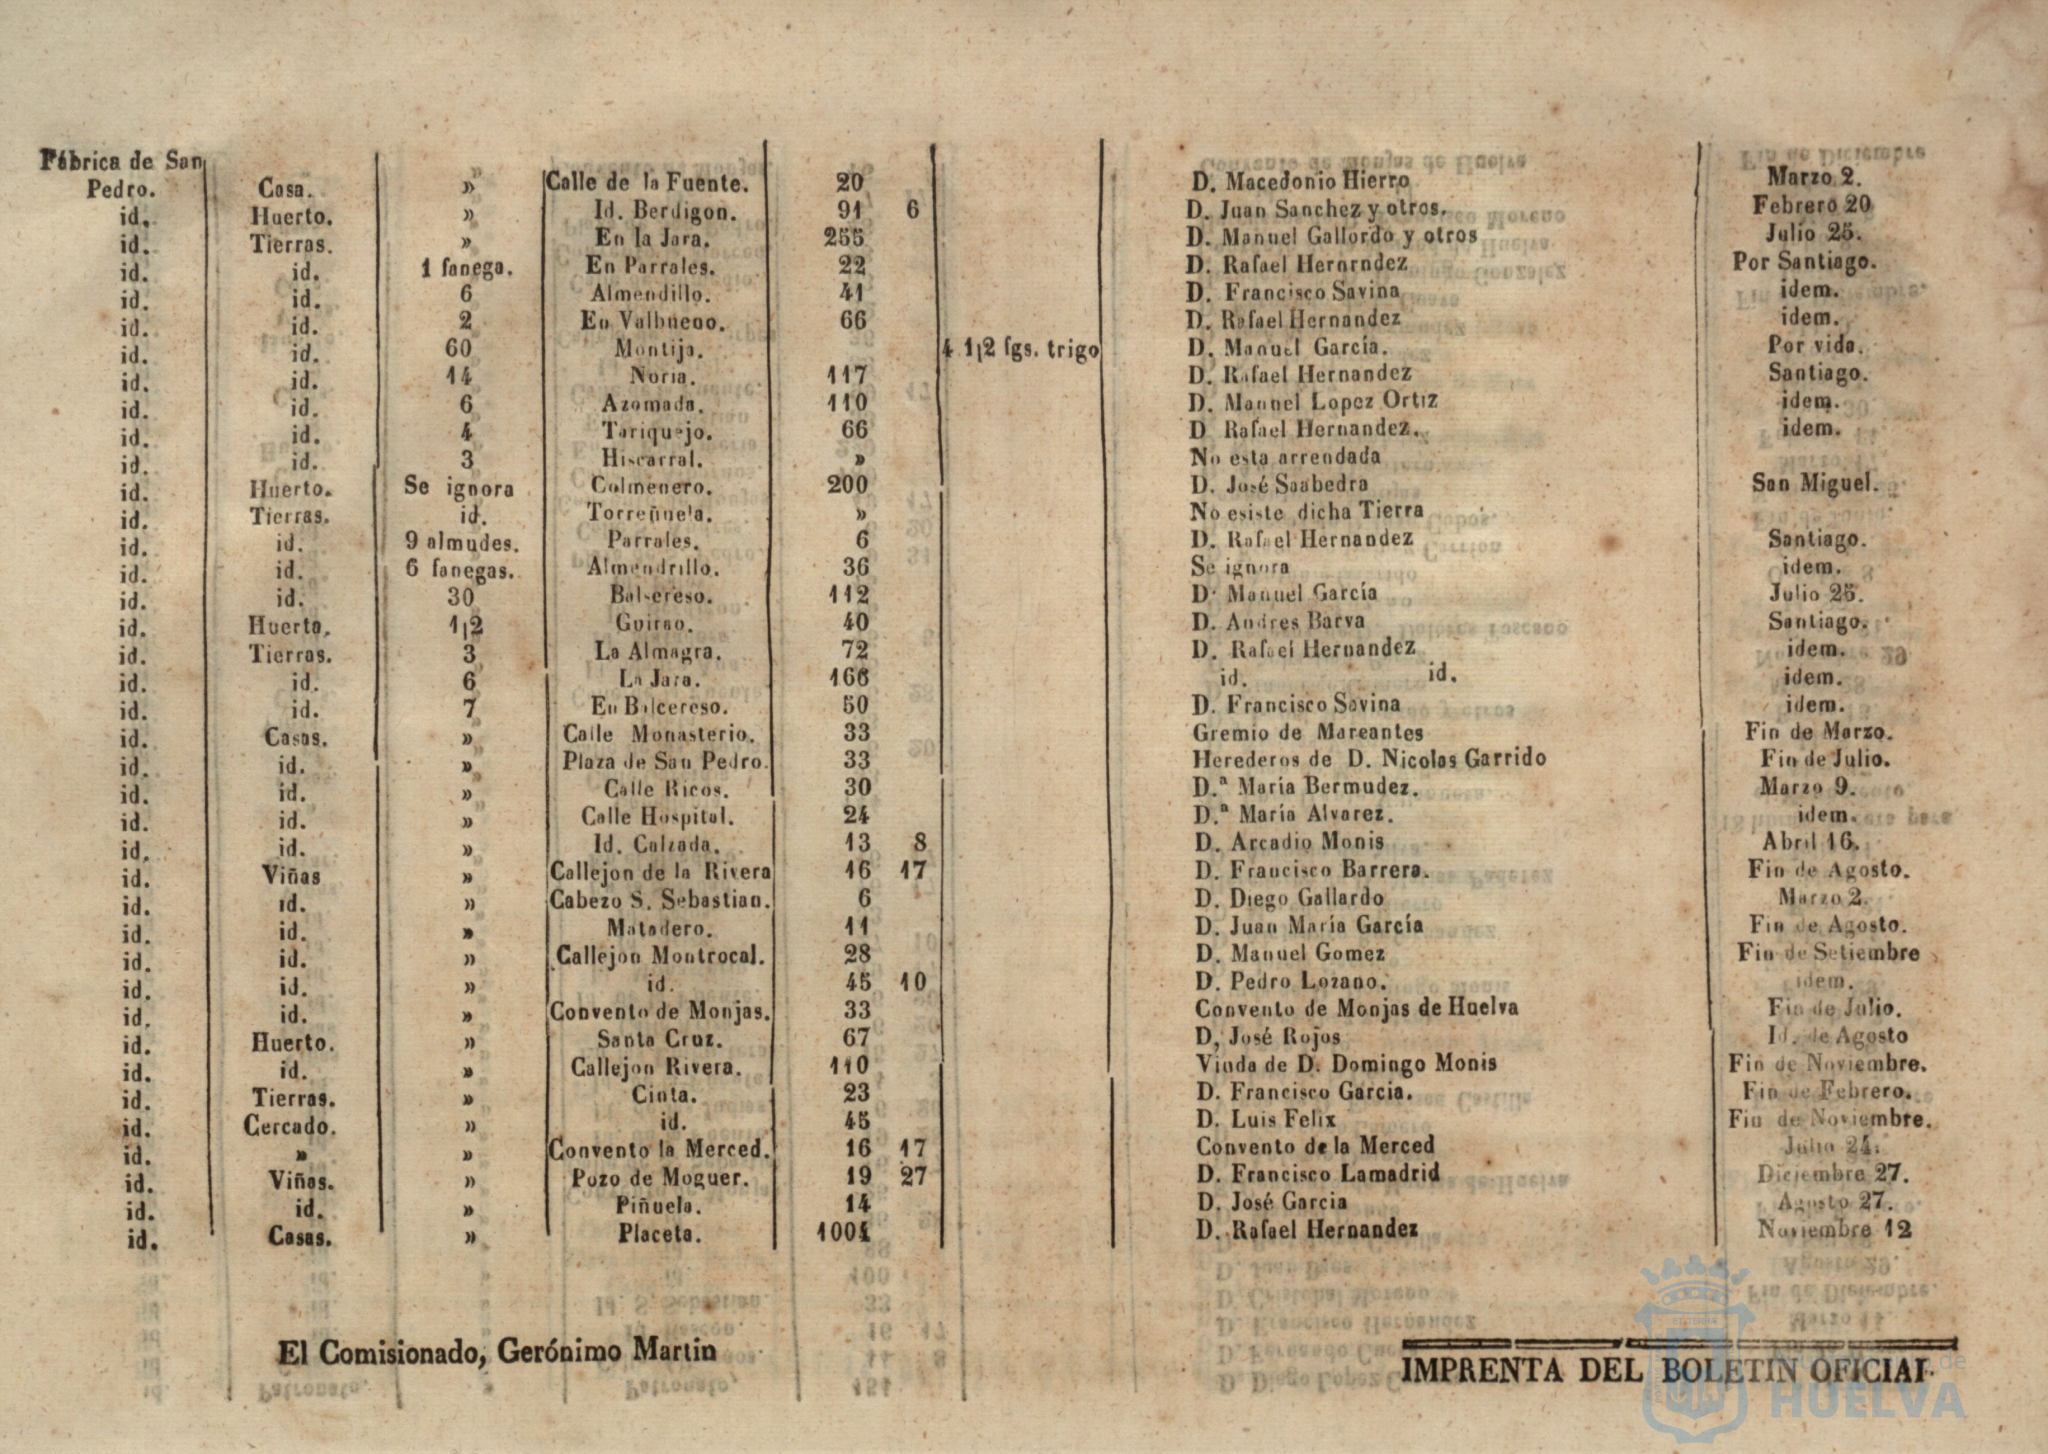 Fábrica de San
Pedro. Casa. » Calle de la Fuente. 20 D. Macedonio Hierro Marzo 2.
id. Huerto. » Id. Berdigon. 91 6 D. Juan Sanchez y otros. Febrero 20
id. Tierras. » En la Jara. 255 D. Manuel Gallordo y otros Julio 25.
id. id. 1 fanega. En Parrales. 22 D. Rafael Hernrndez Por Santiago.
id. id. 6 Almendillo. 41 D. Francisco Savina idem.
id. id. 2 En Valbueno. 66 D. Rafael Hernandez idem.
id. id. 60 Montija. 4 1¡2 fgs. trigo D. Manuel García. Por vida.
id. id. 14 Noria. 117 D. Rafael Hernandez Santiago.
id. id. 6 Azomada. 110 D. Manuel Lopez Ortiz idem.
id. id. 4 Tariquejo. 66 D Rafael Hernandez. idem.
id. id. 3 Hiscarral. » No esta arrendada
id. Huerto. Se ignora Colmenero. 200 D. José Saabedra San Miguel.
id. Tierras. id. Torreñuela. » No esiste dicha Tierra
id. id. 9 almudes. Parrales. 6 D. Rafael Hernandez Santiago.
id. id. 6 fanegas. Almendrillo. 36 Se ignora idem.
id. id. 30 Balsereso. 112 D. Manuel García Julio 25.
id. Huerto. 1¡2 Guirao. 40 D. Andres Barva Santiago.
id. Tierras. 3 La Almagra. 72 D. Rafael Hernandez idem.
id. id. 6 La Jara. 166 id. id. idem.
id. id. 7 En Balcereso. 50 D. Francisco Savina idem.
id. Casas. » Calle Monasterio. 33 Gremio de Mareantes Fin de Marzo.
id. id. » Plaza de San Pedro. 33 Herederos de D. Nicolas Garrido Fin de Julio.
id. id. » Calle Ricos. 30 D.ª María Bermudez. Marzo 9.
id. id. » Calle Hospital. 24 D.ª María Alvarez. idem.
id. id. » Id. Calzada. 13 8 D. Arcadio Monis Abril 16.
id. Viñas » Callejon de la Rivera 16 17 D. Francisco Barrera. Fin de Agosto.
id. id. » Cabezo S. Sebastian. 6 D. Diego Gallardo Marzo 2.
id. id. » Matadero. 11 D. Juan María García Fin de Agosto.
id. id. » Callejon Montrocal. 28 D. Manuel Gomez Fin de Setiembre
id. id. » id. 45 10 D. Pedro Lozano. idem.
id. id. » Convento de Monjas. 33 Convento de Monjas de Huelva Fin de Julio.
id. Huerto. » Santa Cruz. 67 D, José Rojos Id. de Agosto
id. id. » Callejon Rivera. 110 Vinda de D. Domingo Monis Fin de Noviembre.
id. Tierras. » Cinta. 23 D. Francisco Garcia. Fin de Febrero.
id. Cercado. » id. 45 D. Luis Felix Fin de Noviembre.
id. » » Convento la Merced. 16 17 Convento de la Merced Julio 24.
id. Viñas. » Pozo de Moguer. 19 27 D. Francisco Lamadrid Diciembre 27.
id. id. » Piñuela. 14 D. José Garcia Agosto 27.
id. Casas. » Placeta. 1004 D. Rafael Hernandez Noviembre 12
El Comisionado, Gerónimo Martin
IMPRENTA DEL BOLETIN OFICIAL
de
HUELVA